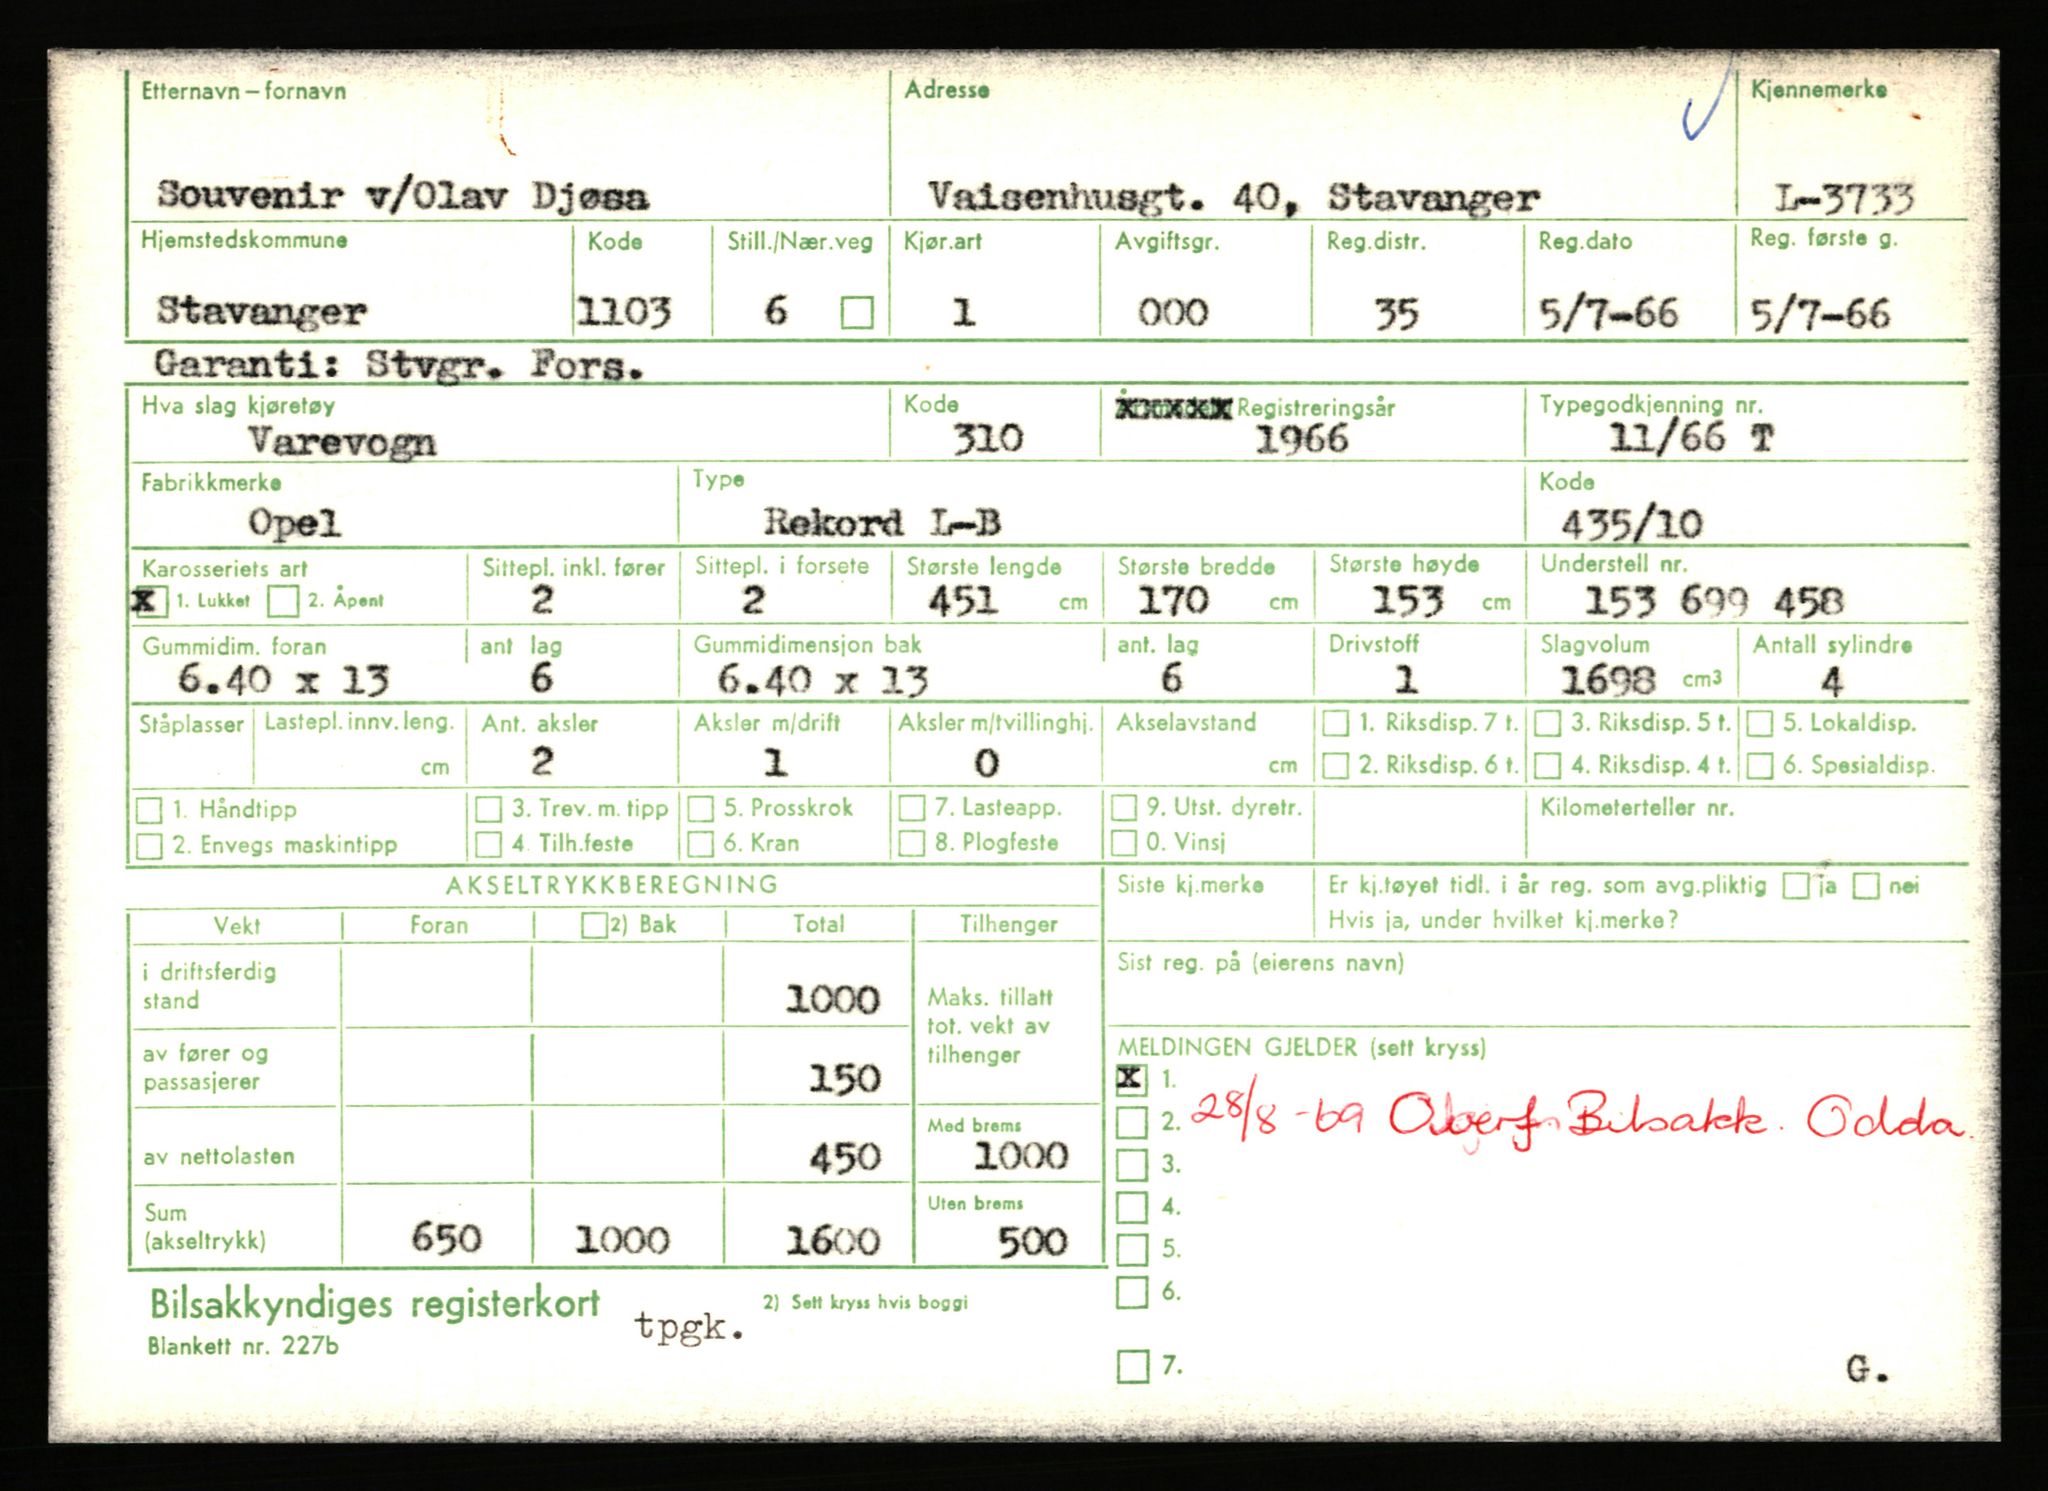 Etternavn – fornavn Adresse Kjennemerke
Souvenir v/Olav Djøsa Vaisenhusgt. 40, Stavanger L-3733
Hjemstedskommune Kode Still./Nær.veg Kjør.art Avgiftsgr. Reg.distr. Reg.dato Reg. første g.
Stavanger 1103 6 1 000 35 5/7-66 5/7-66
Garanti: Stvgr. Fors.
Hva slag kjøretøy Kode Registreringsår Typegodkjenning nr.
Varevogn 310 1966 11/66 T
Fabrikkmerke Type Kode
Opel Rekord L-B 435/10
Karosseriets art Sittepl. inkl. fører Sittepl. i forsete Største lengde Største bredde Største høyde Understell nr.
X 1. Lukket 2. Åpent 2 2 451 cm 170 cm 153 cm 153 699 458
Gummidim. foran ant lag Gummidimensjon bak ant. lag Drivstoff Slagvolum Antall sylindre
6.40 x 13 6 6.40 x 13 6 1 1698 cm3 4
Ståplasser Lastepl. innv. leng. Ant. aksler Aksler m/drift Aksler m/tvillinghj. Akselavstand 1. Riksdisp. 7 t. 3. Riksdisp. 5 t. 5. Lokaldisp.
cm 2 1 0 cm 2. Riksdisp. 6 t. 4. Riksdisp. 4 t. 6. Spesialdisp.
1. Håndtipp 3. Trev. m. tipp 5. Prosskrok 7. Lasteapp. 9. Utst. dyretr. Kilometerteller nr.
2. Envegs maskintipp 4. Tilh.feste 6. Kran 8. Plogfeste 0. Vinsj
AKSELTRYKKBEREGNING Siste kj.merke Er kj.tøyet tidl. i år reg. som avg.pliktig ja nei
Vekt Foran 2) Bak Total Tilhenger Hvis ja, under hvilket kj.merke?
i driftsferdig stand 1000 Maks. tillatt tot. vekt av tilhenger Sist reg. på (eierens navn)
av fører og passasjerer 150 MELDINGEN GJELDER (sett kryss)
X 1.
2. 28/8-69 Bilsakk. Odda.
av nettolasten 450 Med brems 1000 3.
Sum (akseltrykk) 650 1000 1600 Uten brems 500 4.
5.
6.
Bilsakkyndiges registerkort tpgk. 2) Sett kryss hvis boggi
Blankett nr. 227b
7. G.